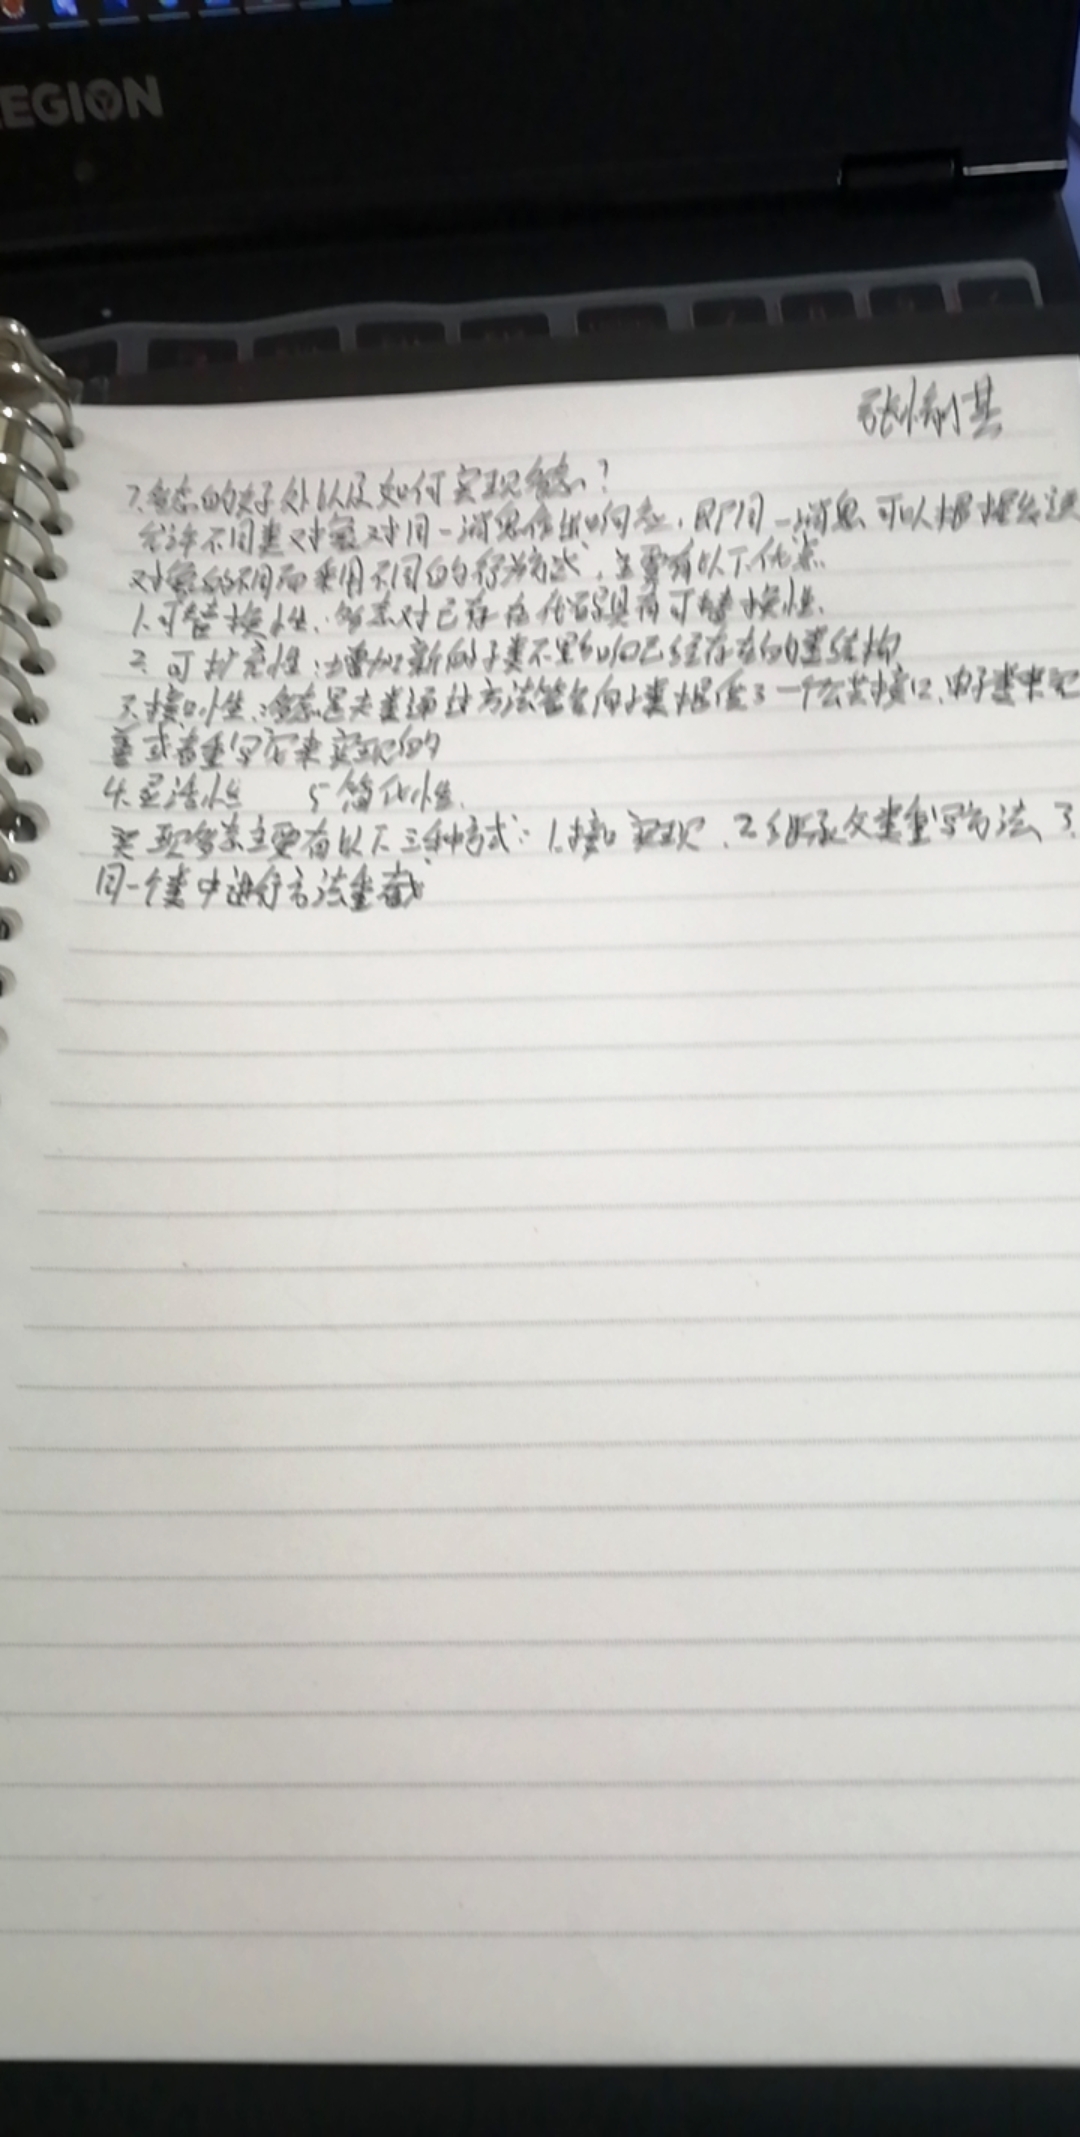 EGION
张
7.多态的好处以及如何实现多态？
允许不同类对象对同一消息作出响应，即同一消息可以根据发送
对象的不同而采用不同的行为方式，主要有以下优点
1.可替换性：多态对已存在代码具有可替换性.
2.可扩充性：增加新的子类不影响已经存在的类结构
3.接口性：多态是父类通过方法签名向子类提供了一个公共接口，由子类来完
善或者重写它来实现的
4.灵活性 5.简化性.
实现多态主要有以下三种方式：1.接口实现，2.继承父类重写方法 3.
同一个类中进行方法重载